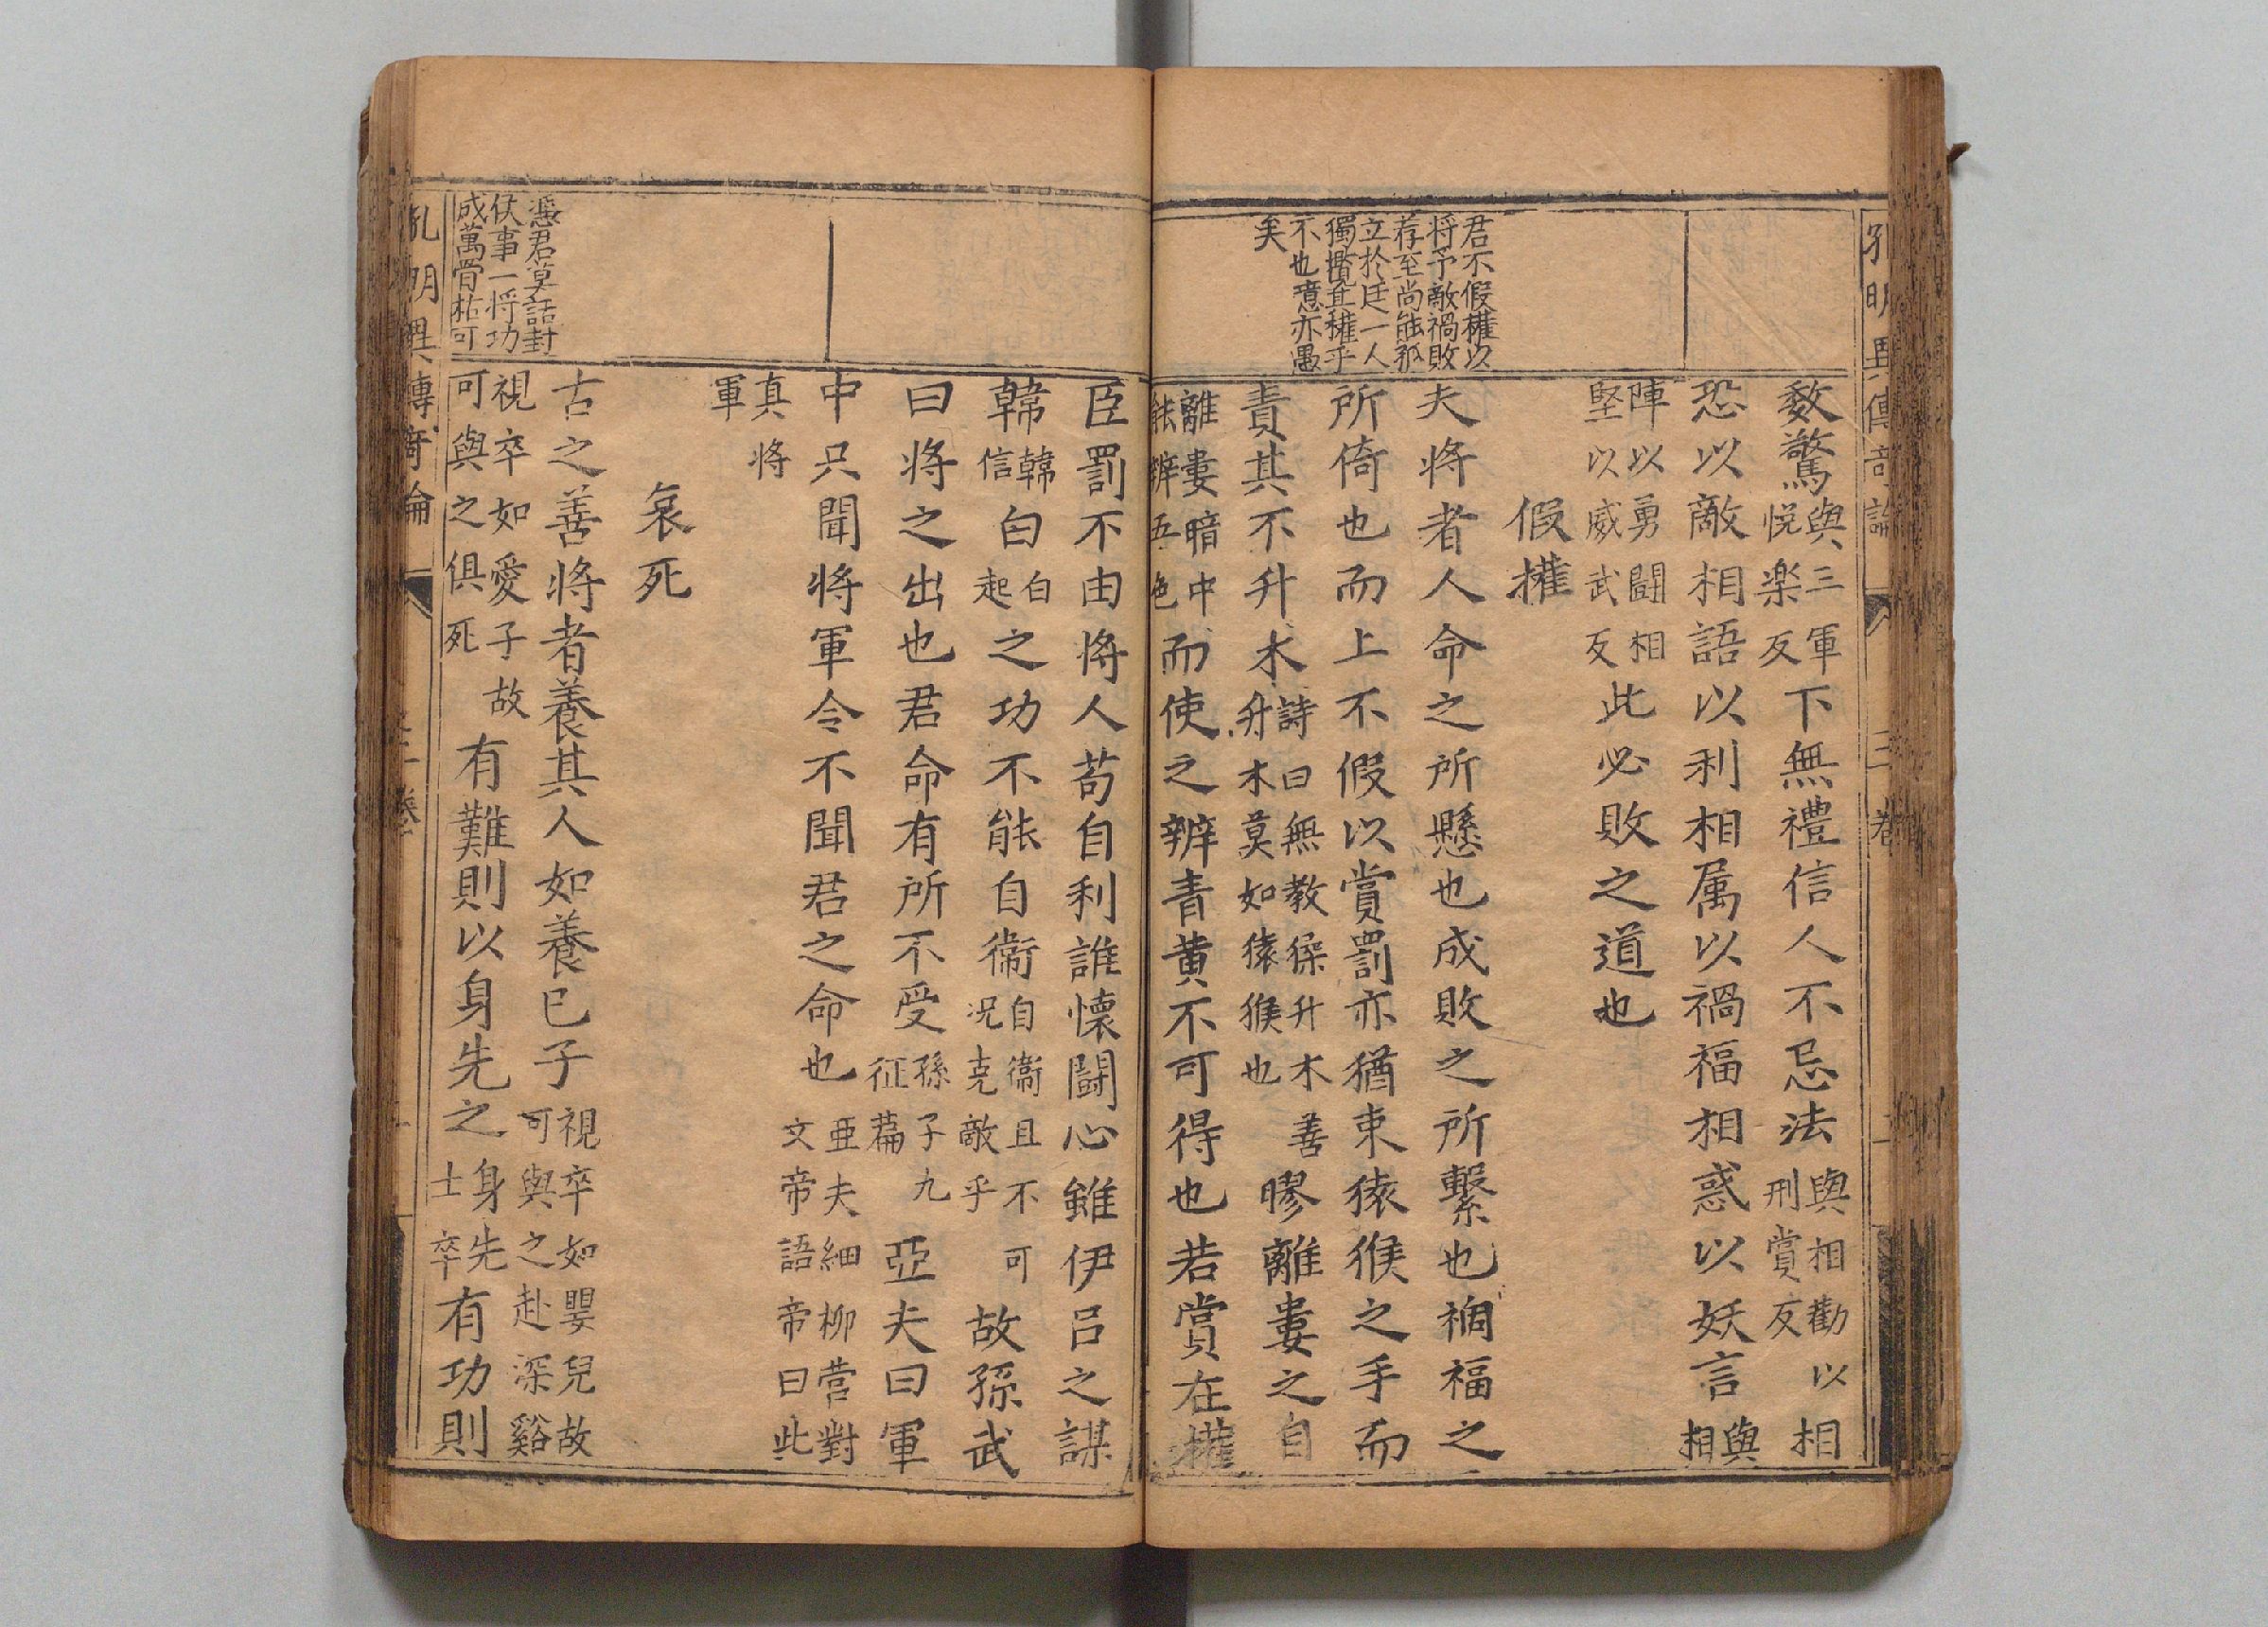 孔明異傳奇論 三卷
數驚與三軍悦楽反下無禮信人不忌法與相勸以刑賞反相
恐以敵相語以利相属以禍福相惑以妖言與相
陣以勇闘相堅以威武反此必敗之道也
假權
君不假權以
将予敵禍敗
荐至尚能孤
立於廷一人
獨攬其權乎
不也意亦愚
矣
夫将者人命之所懸也成敗之所繫也禍福之
所倚也而上不假以賞罰亦猶束猿猴之手而
責其不升木詩曰無教猱升木善升木莫如猿猴也膠離婁之自
離婁暗中能辨五色而使之辨青黄不可得也若賞在權
臣罰不由将人苟自利誰懐闘心雖伊吕之謀
韓韓信白白起之功不能自衞自衞且不可况克敵乎故孫武
曰将之出也君命有所不受孫子九征篇亞夫曰軍
中只聞将軍令不聞君之命也亜夫細柳営對文帝語帝曰此
真将軍
哀死
憑君莫話封
侯事一将功
成萬骨枯可
古之善将者養其人如養已子視卒如嬰兒故可與之赴深谿
視卒如愛子故可與之俱死有難則以身先之身先士卒有功則
孔明異傳奇論